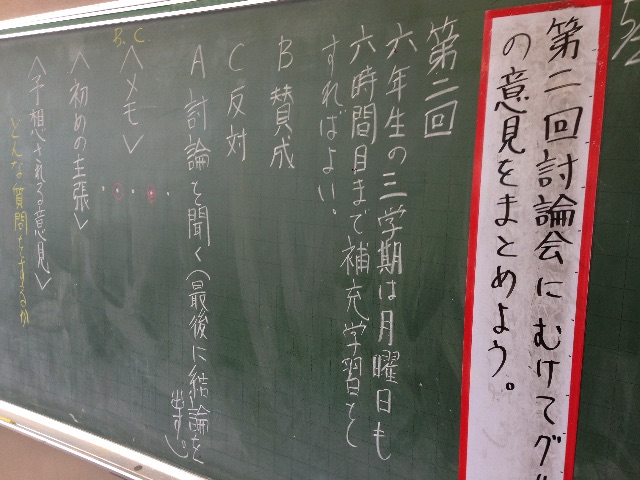 5/2
第二回討論会にむけてグル
の意見をまとめよう。
第二回
六年生の三学期は月曜日も
六時間目まで補充学習を
すればよい。
B 賛成
C 反対
A 討論を聞く(最後に結論を
出す。)
B、C
〈メモ〉
〈初めの主張〉
〈予想される意見〉
どんな質問をするか